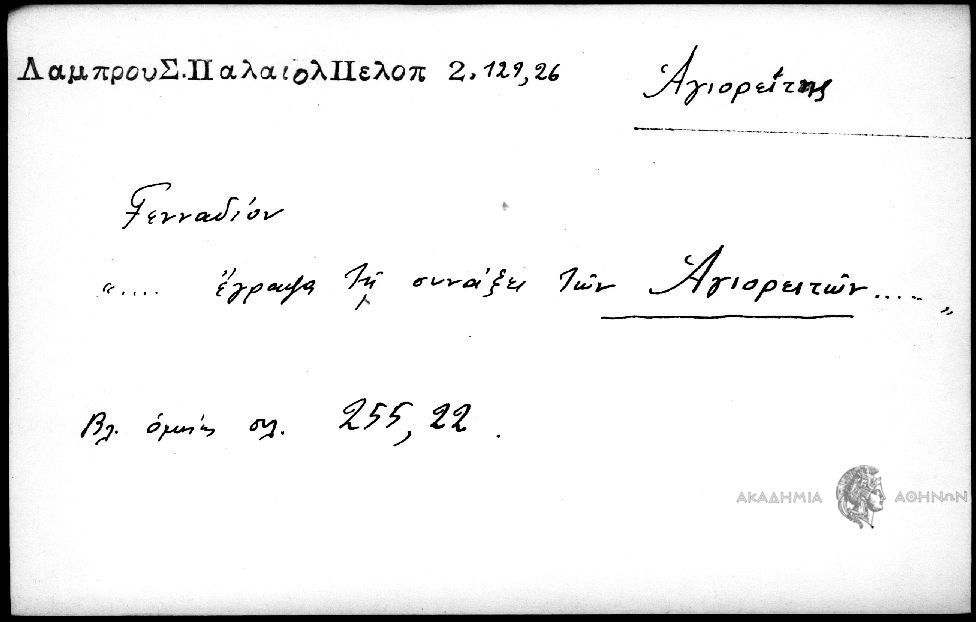 ΛαμπρουΣ.ΠαλαιολΠελοπ 2.129,26
Ἁγιορείτης
Γενναδίου
".... ἔγραψα τῇ συνάξει τῶν Ἁγιορειτῶν....."
Βλ. ὁμοίως σελ. 255, 22.
ΑΚΑΔΗΜΙΑ ΑΘΗΝΩΝ